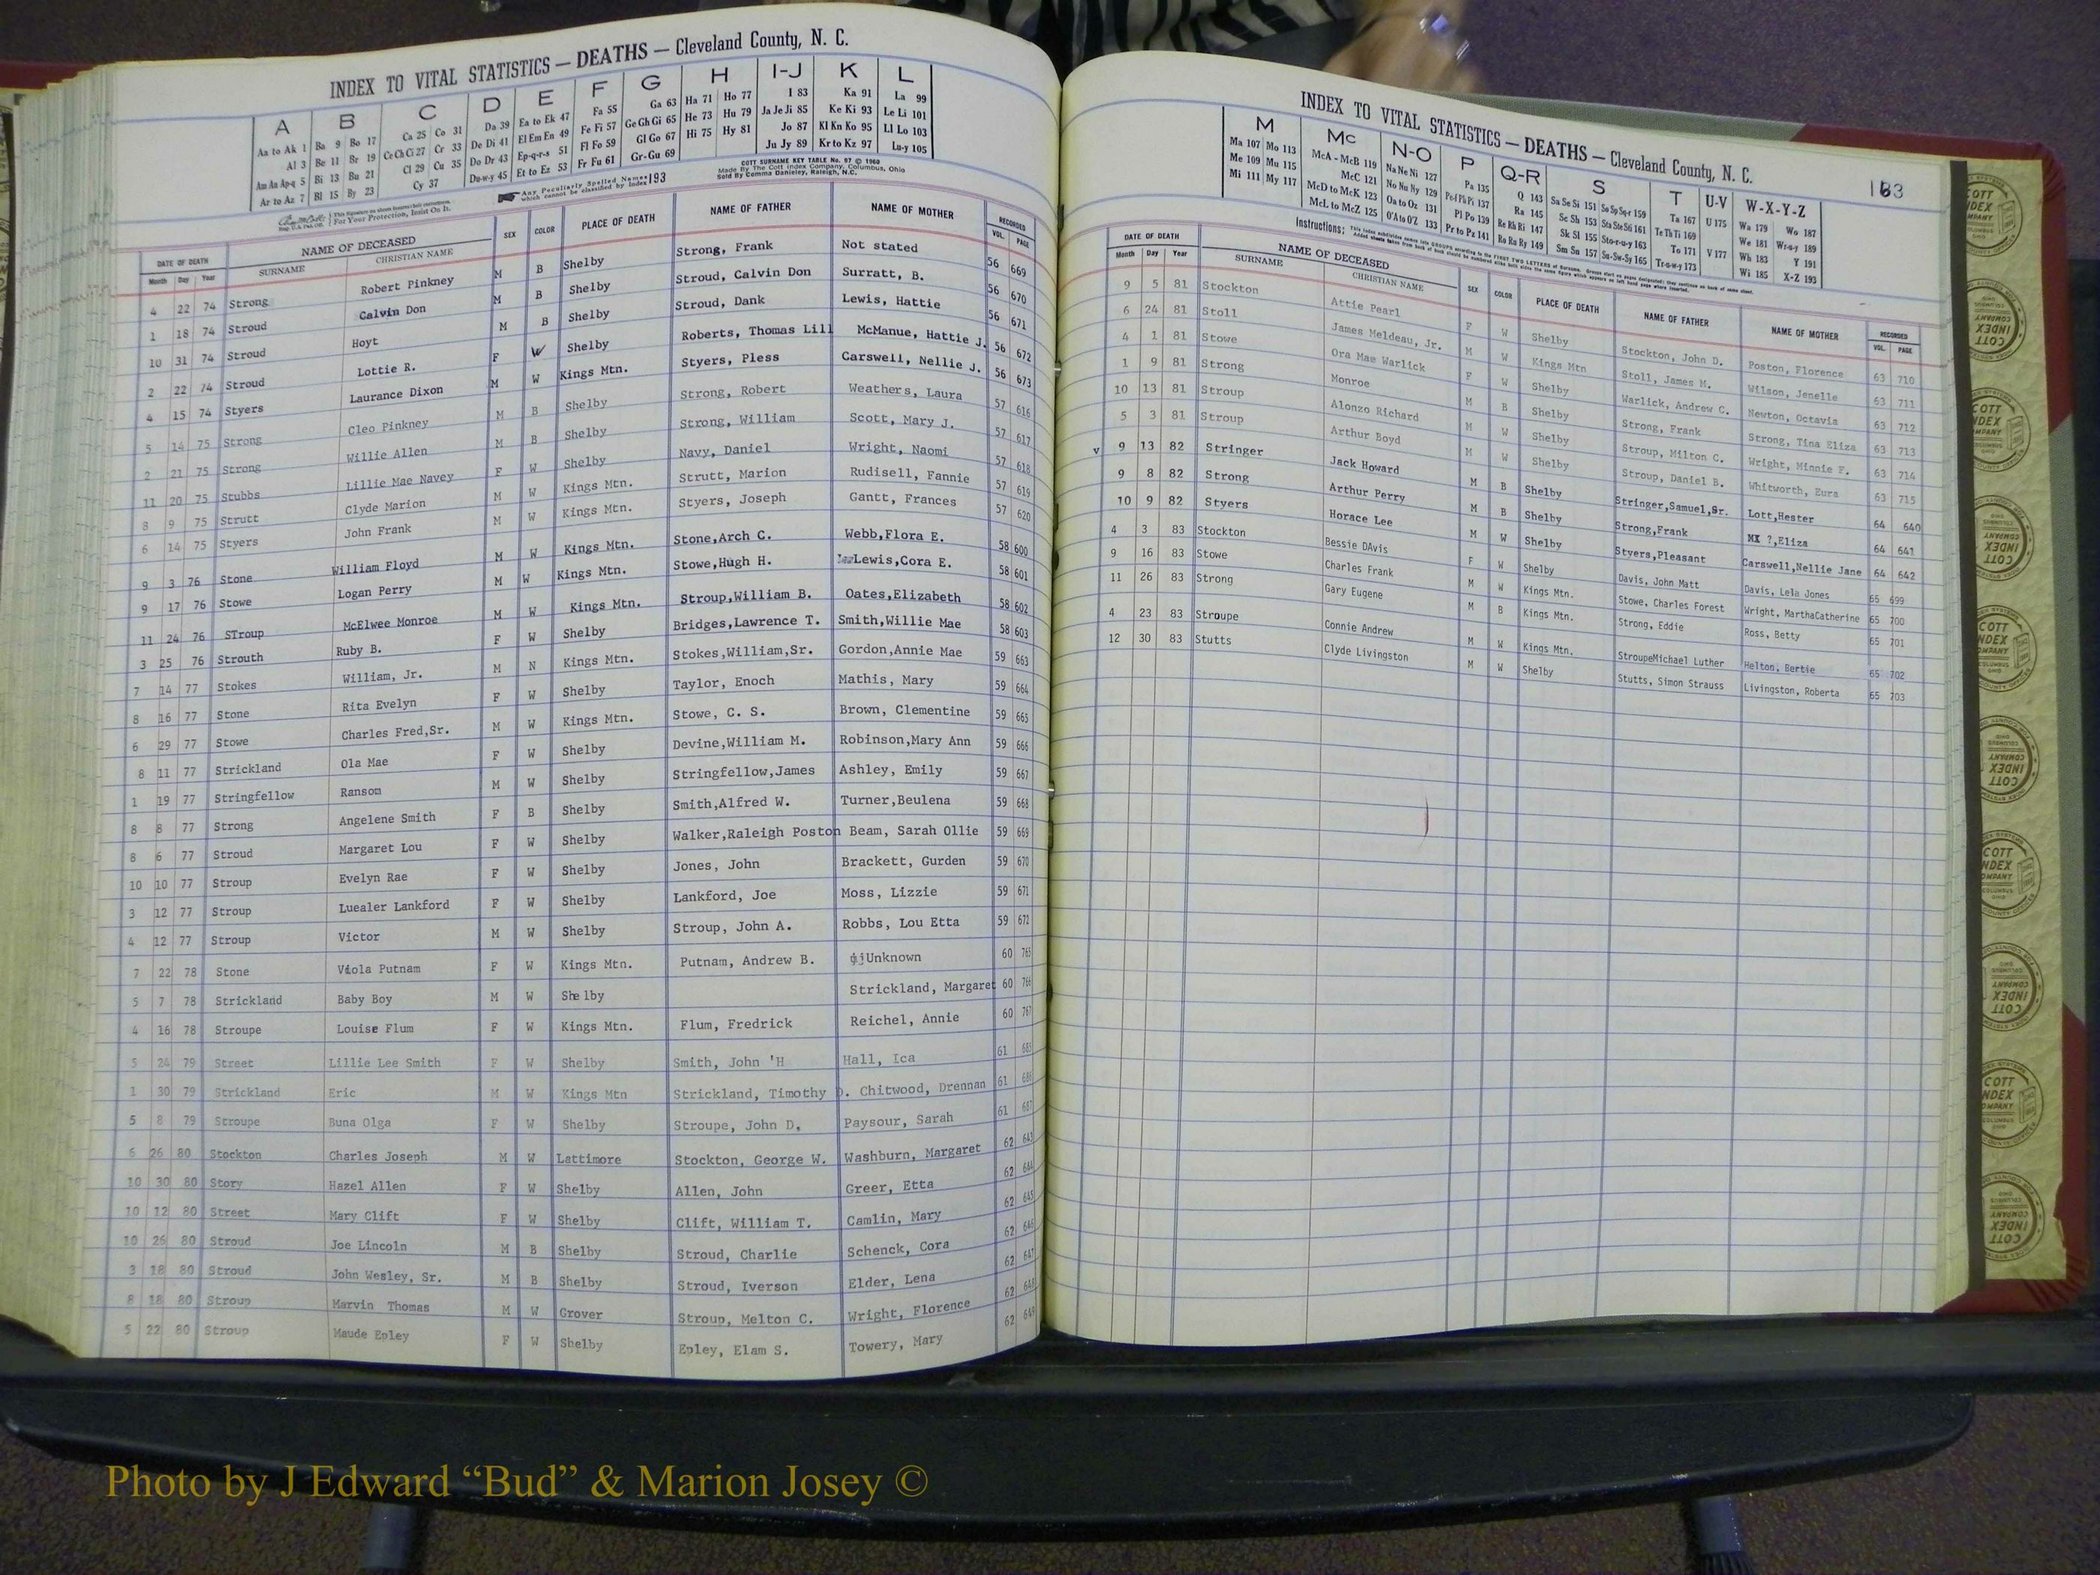 INDEX TO VITAL STATISTICS — DEATHS — Cleveland County, N. C.
A B C D E F G H I-J K L
Aa to Ak 1 Ba 9 Bo 17 Ca 25 Co 31 Da 39 Ea to Ek 47 Fa 55 Ga 63 Ha 71 Ho 77 I 83 Ka 91 La 99
Al 3 Be 11 Br 19 Ce Ch Ci 27 Cr 33 De Di 41 El Em En 49 Fe Fi 57 Ge Gh Gi 65 He 73 Hu 79 Ja Je Ji 85 Ke Ki 93 Le Li 101
Am An Ap-q 5 Bi 13 Bu 21 Cl 29 Cu 35 Do Dr 43 Ep-q-r-s 51 Fl Fo 59 Gl Go 67 Hi 75 Hy 81 Jo 87 Kl Kn Ko 95 Ll Lo 103
Ar to Az 7 Bl 15 By 23 Cy 37 Du-w-y 45 Et to Ez 53 Fr Fu 61 Gr-Gu 69 Ju Jy 89 Kr to Kz 97 Lu-y 105
This Signature on sheets insures their correctness.
For Your Protection, Insist On It.
Any Peculiarly Spelled Names which cannot be classified by Index 193
COTT SURNAME KEY TABLE No. 97 © 1960
Made By The Cott Index Company, Columbus, Ohio
Sold By Comma Danieley, Raleigh, N.C.
DATE OF DEATH NAME OF DECEASED SEX COLOR PLACE OF DEATH NAME OF FATHER NAME OF MOTHER RECORDED
Month Day Year SURNAME CHRISTIAN NAME VOL. PAGE
4 22 74 Strong Robert Pinkney M B Shelby Strong, Frank Not stated 56 669
1 18 74 Stroud Calvin Don M B Shelby Stroud, Calvin Don Surratt, B. 56 670
10 31 74 Stroud Hoyt M B Shelby Stroud, Dank Lewis, Hattie 56 671
2 22 74 Stroud Lottie R. F W Shelby Roberts, Thomas Lill McManue, Hattie J. 56 672
4 15 74 Styers Laurance Dixon M W Kings Mtn. Styers, Pless Carswell, Nellie J. 56 673
5 14 75 Strong Cleo Pinkney M B Shelby Strong, Robert Weathers, Laura 57 616
2 21 75 Strong Willie Allen M B Shelby Strong, William Scott, Mary J. 57 617
11 20 75 Stubbs Lillie Mae Navey F W Shelby Navy, Daniel Wright, Naomi 57 618
8 9 75 Strutt Clyde Marion M W Kings Mtn. Strutt, Marion Rudisell, Fannie 57 619
6 14 75 Styers John Frank M W Kings Mtn. Styers, Joseph Gantt, Frances 57 620
9 3 76 Stone William Floyd M W Kings Mtn. Stone,Arch C. Webb,Flora E. 58 600
9 17 76 Stowe Logan Perry M W Kings Mtn. Stowe,Hugh H. Lewis,Cora E. 58 601
11 24 76 STroup McElwee Monroe M W Kings Mtn. Stroup,William B. Oates,Elizabeth 58 602
3 25 76 Strouth Ruby B. F W Shelby Bridges,Lawrence T. Smith,Willie Mae 58 603
7 14 77 Stokes William, Jr. M N Kings Mtn. Stokes,William,Sr. Gordon,Annie Mae 59 663
8 16 77 Stone Rita Evelyn F W Shelby Taylor, Enoch Mathis, Mary 59 664
6 29 77 Stowe Charles Fred,Sr. M W Kings Mtn. Stowe, C. S. Brown, Clementine 59 665
8 11 77 Strickland Ola Mae F W Shelby Devine,William M. Robinson,Mary Ann 59 666
1 19 77 Stringfellow Ransom M W Shelby Stringfellow,James Ashley, Emily 59 667
8 8 77 Strong Angelene Smith F B Shelby Smith,Alfred W. Turner,Beulena 59 668
8 6 77 Stroud Margaret Lou F W Shelby Walker,Raleigh Poston Beam, Sarah Ollie 59 669
10 10 77 Stroup Evelyn Rae F W Shelby Jones, John Brackett, Gurden 59 670
3 12 77 Stroup Luealer Lankford F W Shelby Lankford, Joe Moss, Lizzie 59 671
4 12 77 Stroup Victor M W Shelby Stroup, John A. Robbs, Lou Etta 59 672
7 22 78 Stone Viola Putnam F W Kings Mtn. Putnam, Andrew B. Unknown 60 765
5 7 78 Strickland Baby Boy M W Shelby Strickland, Margaret 60 766
4 16 78 Stroupe Louise Flum F W Kings Mtn. Flum, Fredrick Reichel, Annie 60 767
5 24 79 Street Lillie Lee Smith F W Shelby Smith, John 'H Hall, Ica 61 685
1 30 79 Strickland Eric M W Kings Mtn Strickland, Timothy D. Chitwood, Drennan 61 686
5 8 79 Stroupe Buna Olga F W Shelby Stroupe, John D. Paysour, Sarah 61 687
6 26 80 Stockton Charles Joseph M W Lattimore Stockton, George W. Washburn, Margaret 62 643
10 30 80 Story Hazel Allen F W Shelby Allen, John Greer, Etta 62 644
10 12 80 Street Mary Clift F W Shelby Clift, William T. Camlin, Mary 62 645
10 26 80 Stroud Joe Lincoln M B Shelby Stroud, Charlie Schenck, Cora 62 646
3 18 80 Stroud John Wesley, Sr. M B Shelby Stroud, Iverson Elder, Lena 62 647
8 18 80 Stroup Marvin Thomas M W Grover Stroup, Melton C. Wright, Florence 62 648
5 22 80 Stroup Maude Epley F W Shelby Epley, Elam S. Towery, Mary 62 649
INDEX TO VITAL STATISTICS — DEATHS — Cleveland County, N. C.
163
M Mc N-O P Q-R S T U-V W-X-Y-Z
Ma 107 Mo 113 McA - McB 119 Na Ne Ni 127 Pa 135 Q 143 Sa Se Si 151 So Sp Sq-r 159 Ta 167 U 175 Wa 179 Wo 187
Me 109 Mu 115 McC 121 No Nu Ny 129 Pe-f Ph Pi 137 Ra 145 Sc Sh 153 Sta Ste Sti 161 Te Th Ti 169 We 181 Wr-u-y 189
Mi 111 My 117 McD to McK 123 Oa to Oz 131 Pl Po 139 Re Rh Ri 147 Sk Sl 155 Sto-r-u-y 163 To 171 V 177 Wh 183 Y 191
McL to McZ 125 O'A to O'Z 133 Pr to Pz 141 Ro Ru Ry 149 Sm Sn 157 Su-Sw-Sy 165 Tr-u-w-y 173 Wi 185 X-Z 193
Instructions:
DATE OF DEATH NAME OF DECEASED SEX COLOR PLACE OF DEATH NAME OF FATHER NAME OF MOTHER RECORDED
Month Day Year SURNAME CHRISTIAN NAME VOL. PAGE
9 5 81 Stockton Attie Pearl F W Shelby Stockton, John D. Poston, Florence 63 710
6 24 81 Stoll James Meldeau, Jr. M W Kings Mtn Stoll, James M. Wilson, Jenelle 63 711
4 1 81 Stowe Ora Mae Warlick F W Shelby Warlick, Andrew C. Newton, Octavia 63 712
1 9 81 Strong Monroe M B Shelby Strong, Frank Strong, Tina Eliza 63 713
10 13 81 Stroup Alonzo Richard M W Shelby Stroup, Milton C. Wright, Minnie F. 63 714
5 3 81 Stroup Arthur Boyd M W Shelby Stroup, Daniel B. Whitworth, Eura 63 715
v 9 13 82 Stringer Jack Howard M B Shelby Stringer,Samuel,Sr. Lott,Hester 64 640
9 8 82 Strong Arthur Perry M B Shelby Strong,Frank MX ?,Eliza 64 641
10 9 82 Styers Horace Lee M W Shelby Styers,Pleasant Carswell,Nellie Jane 64 642
4 3 83 Stockton Bessie DAvis F W Shelby Davis, John Matt Davis, Lela Jones 65 699
9 16 83 Stowe Charles Frank M W Kings Mtn. Stowe, Charles Forest Wright, MarthaCatherine 65 700
11 26 83 Strong Gary Eugene M B Kings Mtn. Strong, Eddie Ross, Betty 65 701
4 23 83 Stroupe Connie Andrew M W Kings Mtn. StroupeMichael Luther Helton, Bertie 65 702
12 30 83 Stutts Clyde Livingston M W Shelby Stutts, Simon Strauss Livingston, Roberta 65 703
COTT INDEX COMPANY COLUMBUS OHIO
Photo by J Edward “Bud” & Marion Josey ©